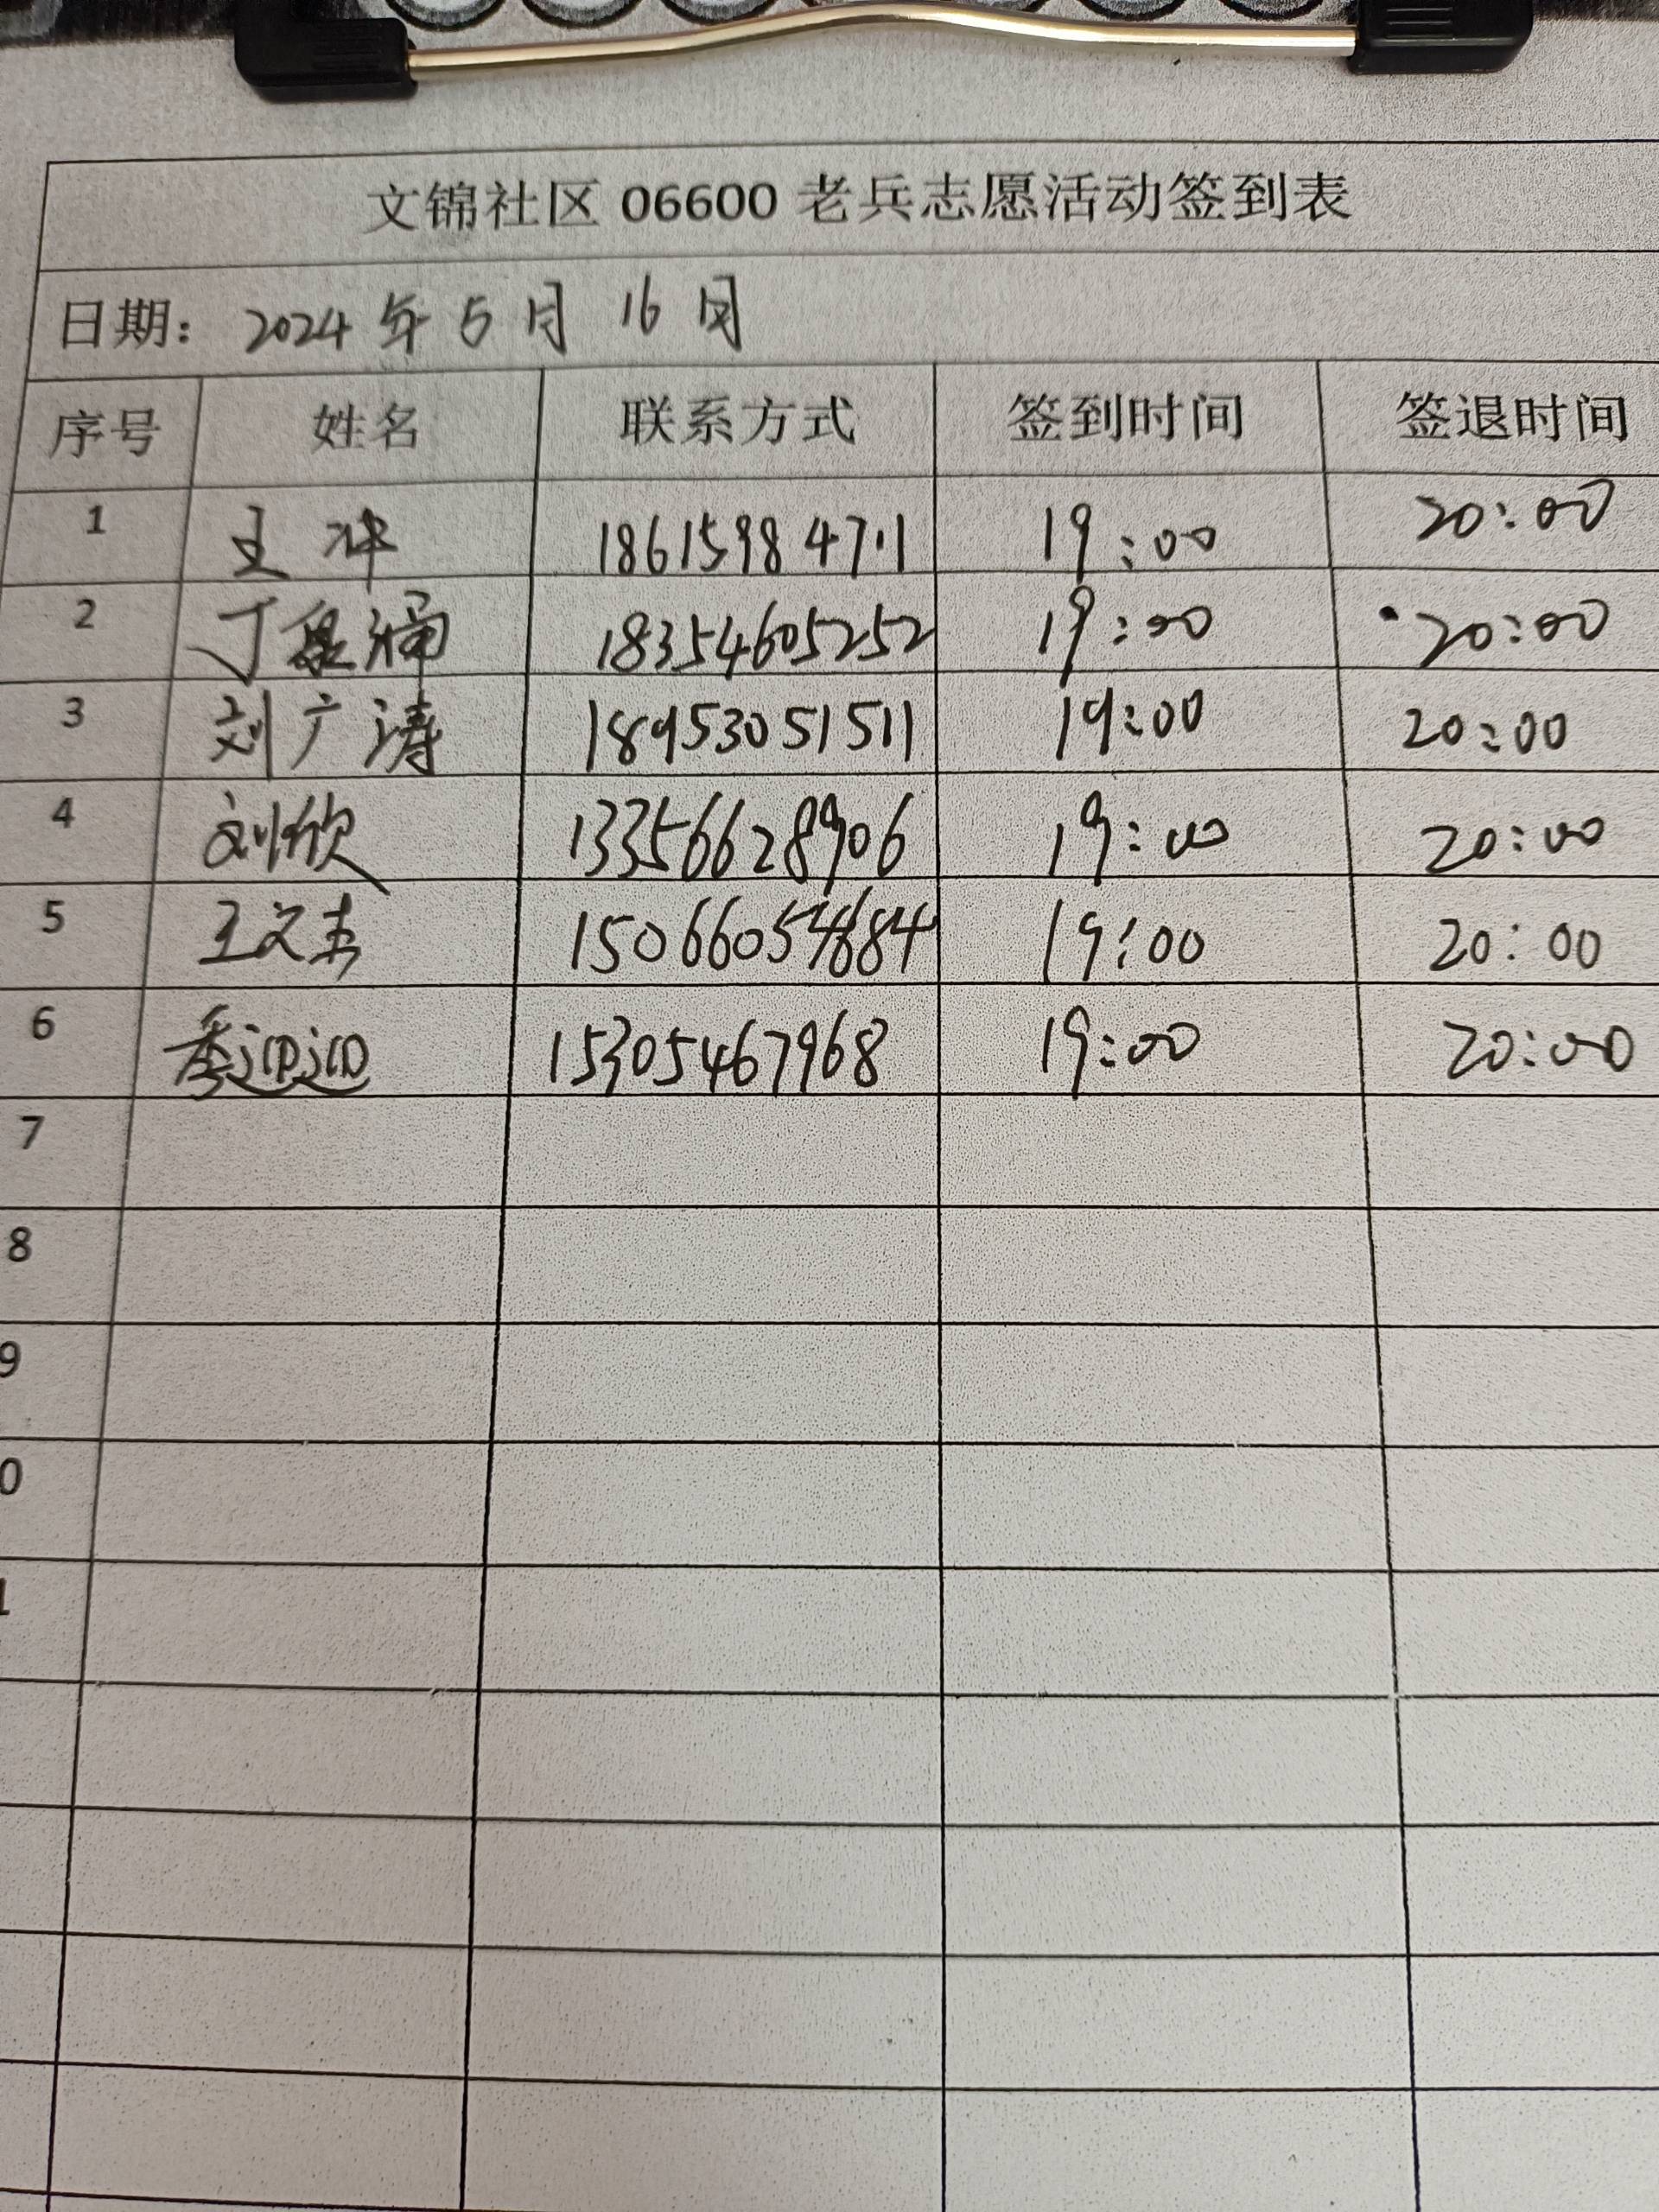 文锦社区 06600 老兵志愿活动签到表
日期： 2024 年 5 月 16 日
序号 姓名 联系方式 签到时间 签退时间
1 王冲 18615984711 19:00 20:00
2 丁 18354605252 19:00 20:00
3 刘广涛 18953051511 19:00 20:00
4 刘欣 13356628906 19:00 20:00
5 王文杰 19:00 20:00
6 15305467968 19:00 20:00
7
8
9
0
1